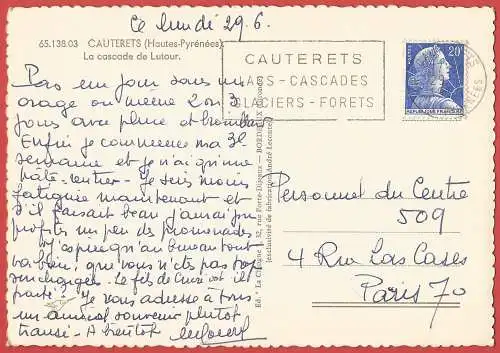 Ce lundi 29.6.
65.138.03 CAUTERETS (Hautes-Pyrénées)
La cascade de Lutour.
Pas un jour sans un
orage ou même 2 ou 3
jours avec pluie et brouillard
Enfin je commence ma 3e
semaine et je n'ai
Je suis moins
fatiguée maintenant et
s'il faisait beau j'aimerais
profiter un peu des promenades
J'espère qu'au bureau tout
va bien, que vous n'êtes pas trop
surchargés. Le fils de est-il
parti? Je vous adresse à tous
un amical souvenir plutôt
transi - A bientôt
Ed. "La Cigogne", 32, rue Porte-Dijeaux — BORDEAUX
(exclusivité de fabrication André Leconte)
CAUTERETS
LACS - CASCADES
GLACIERS - FORETS
20F
REPUBLIQUE FRANCAISE
Personnel du Centre
509
4 Rue Las Cases
Paris 7o